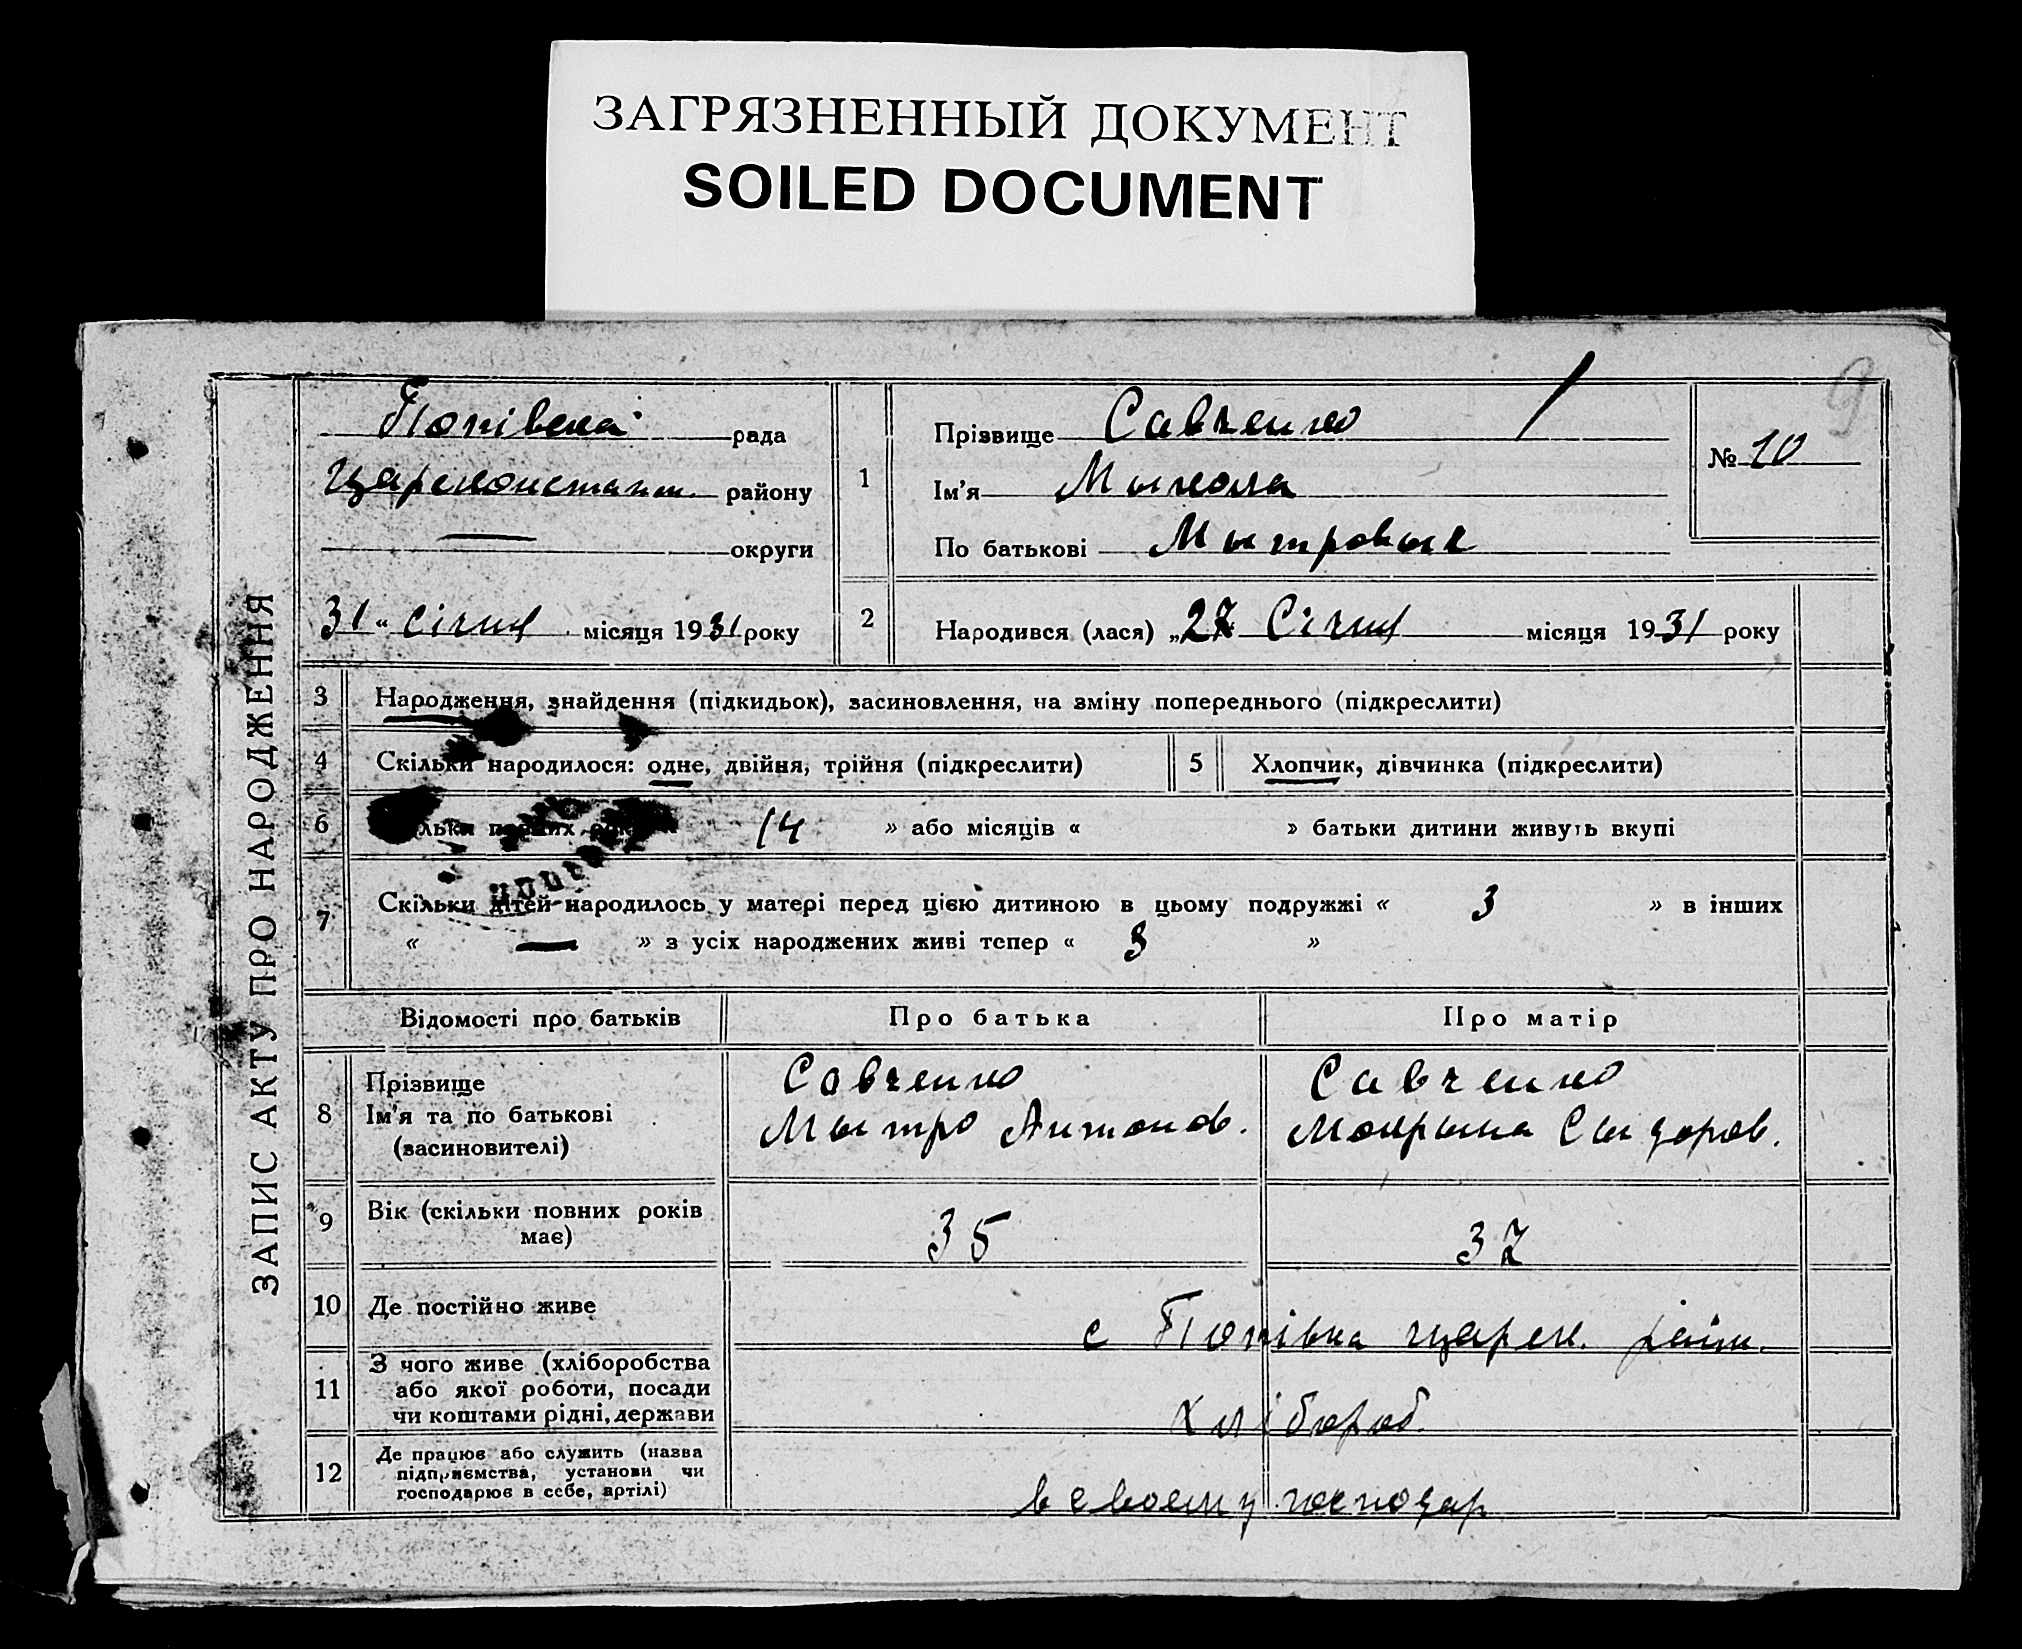 ЗАГРЯЗНЕННЫЙ ДОКУМЕНТ
SOILED DOCUMENT
9
ЗАПИС АКТУ ПРО НАРОДЖЕННЯ
Попівська рада
Цареконстант. району
— округи
31 “ січня місяця 1931 року
1
Прізвище Савченко
Ім'я Мыкола
По батькові Мытровыч
№ 10
2 Народився (лася) „27 Січня місяця 1931 року
3 Народження, знайдення (підкидьок), засиновлення, на зміну попереднього (підкреслити)
4 Скільки народилося: одне, двійня, трійня (підкреслити)
5 Хлопчик, дівчинка (підкреслити)
6 14 » або місяців « » батьки дитини живуть вкупі
7 Скільки дітей народилось у матері перед цією дитиною в цьому подружжі « 3 » в інших
« — » з усіх народжених живі тепер « 3 »
Відомості про батьків Про батька Про матір
8 Прізвище
Ім'я та по батькові
(засиновителі)
Савченко
Мытро Антонов.
Савченко
Мокрына Сыдоров.
9 Вік (скільки повних років
має)
35
37
10 Де постійно живе
с Попівка царек. район.
11 З чого живе (хліборобства
або якої роботи, посади
чи коштами рідні, держави
Хлібороб.
12 Де працює або служить (назва
підприємства, установи чи
господарює в себе, артілі)
в своєму господар